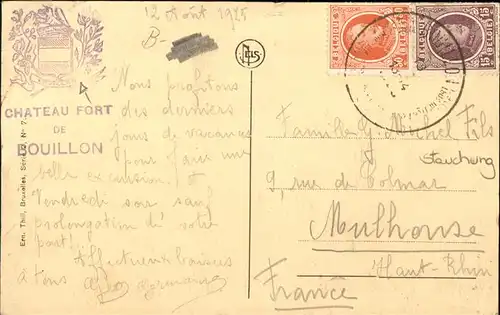 12 Août 1925
B-
CHATEAU FORT
DE
BOUILLON
Ern. Thill, Bruxelles, Série N° 7
Nous profitons
des derniers
jours de vacances
pour faire une
belle excursion. A
Vendredi soir sauf
prolongation de votre
part!
Affectueux baisers
à tous
Germaine
NELS
BELGIQUE
BELGIE
Famille G. Michel Fils
Stauchung
9, rue de Colmar
Mulhouse
Haut-Rhin
France